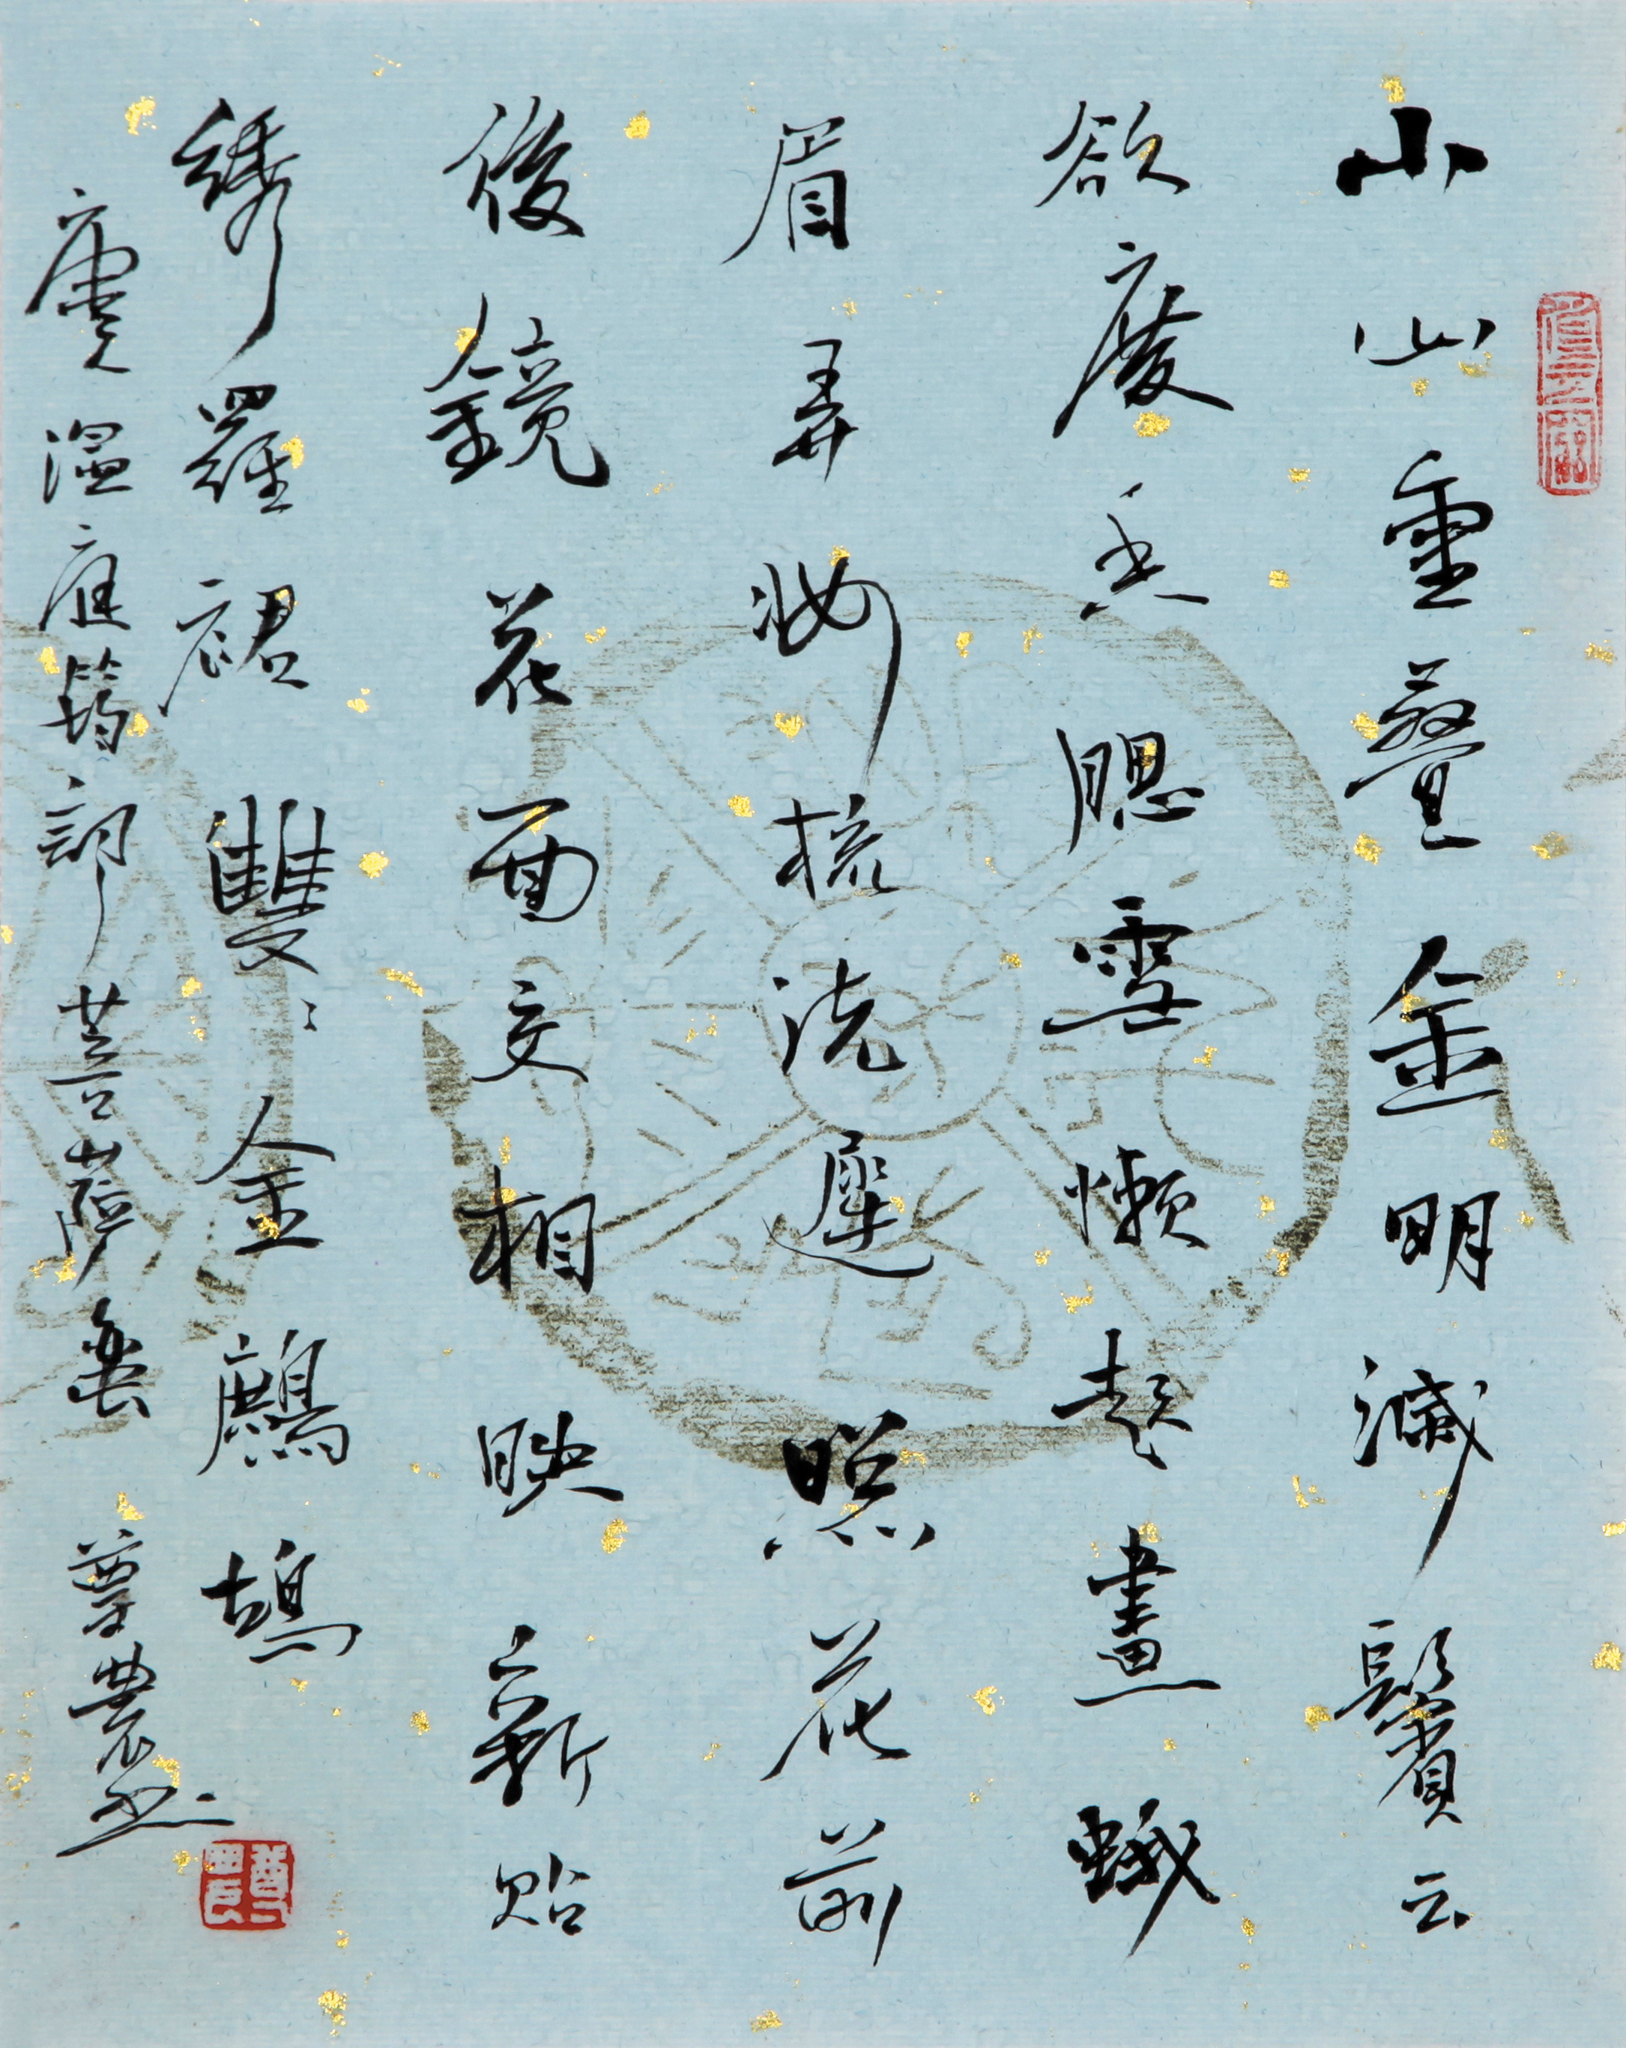 小山重疊金明滅鬢云
欲度香腮雪懶起畫蛾
眉弄妝梳洗遲照花前
後鏡花面交相映新貼
繡羅裙雙雙金鷓鴣
唐溫庭筠詞菩薩蠻 尊農書